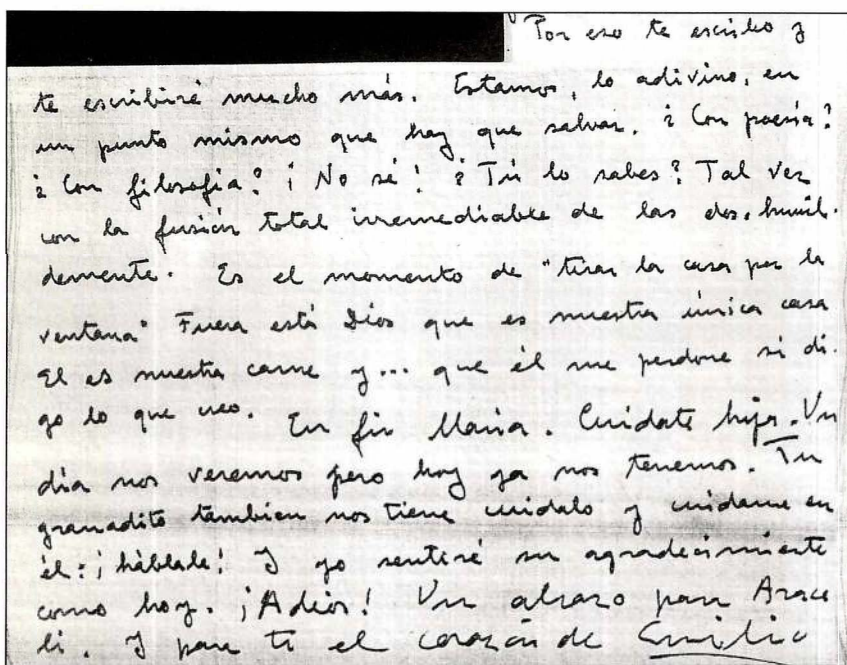 Por eso te escribo y
te escribiré mucho más. Estamos, lo adivino, en
un punto mismo que hay que salvar. ¿Con poesía?
¿Con filosofía? ¡No sé! ¿Tú lo sabes? Tal vez
con la fusión total irremediable de las dos. humil-
demente. Es el momento de "tirar la casa por la
ventana" Fuera está Dios que es nuestra única casa
El es nuestra carne y... que él me perdone si di-
go lo que veo. En fin María. Cuídate hija. Un
día nos veremos pero hoy ya nos tenemos. Tu
granadito tambien nos tiene cuidalo y cuidame en
él: ¡háblale! Y yo sentiré su agradecimiento
como hoy. ¡Adiós! Un abrazo para Arace
li. Y para ti el corazón de Emilio